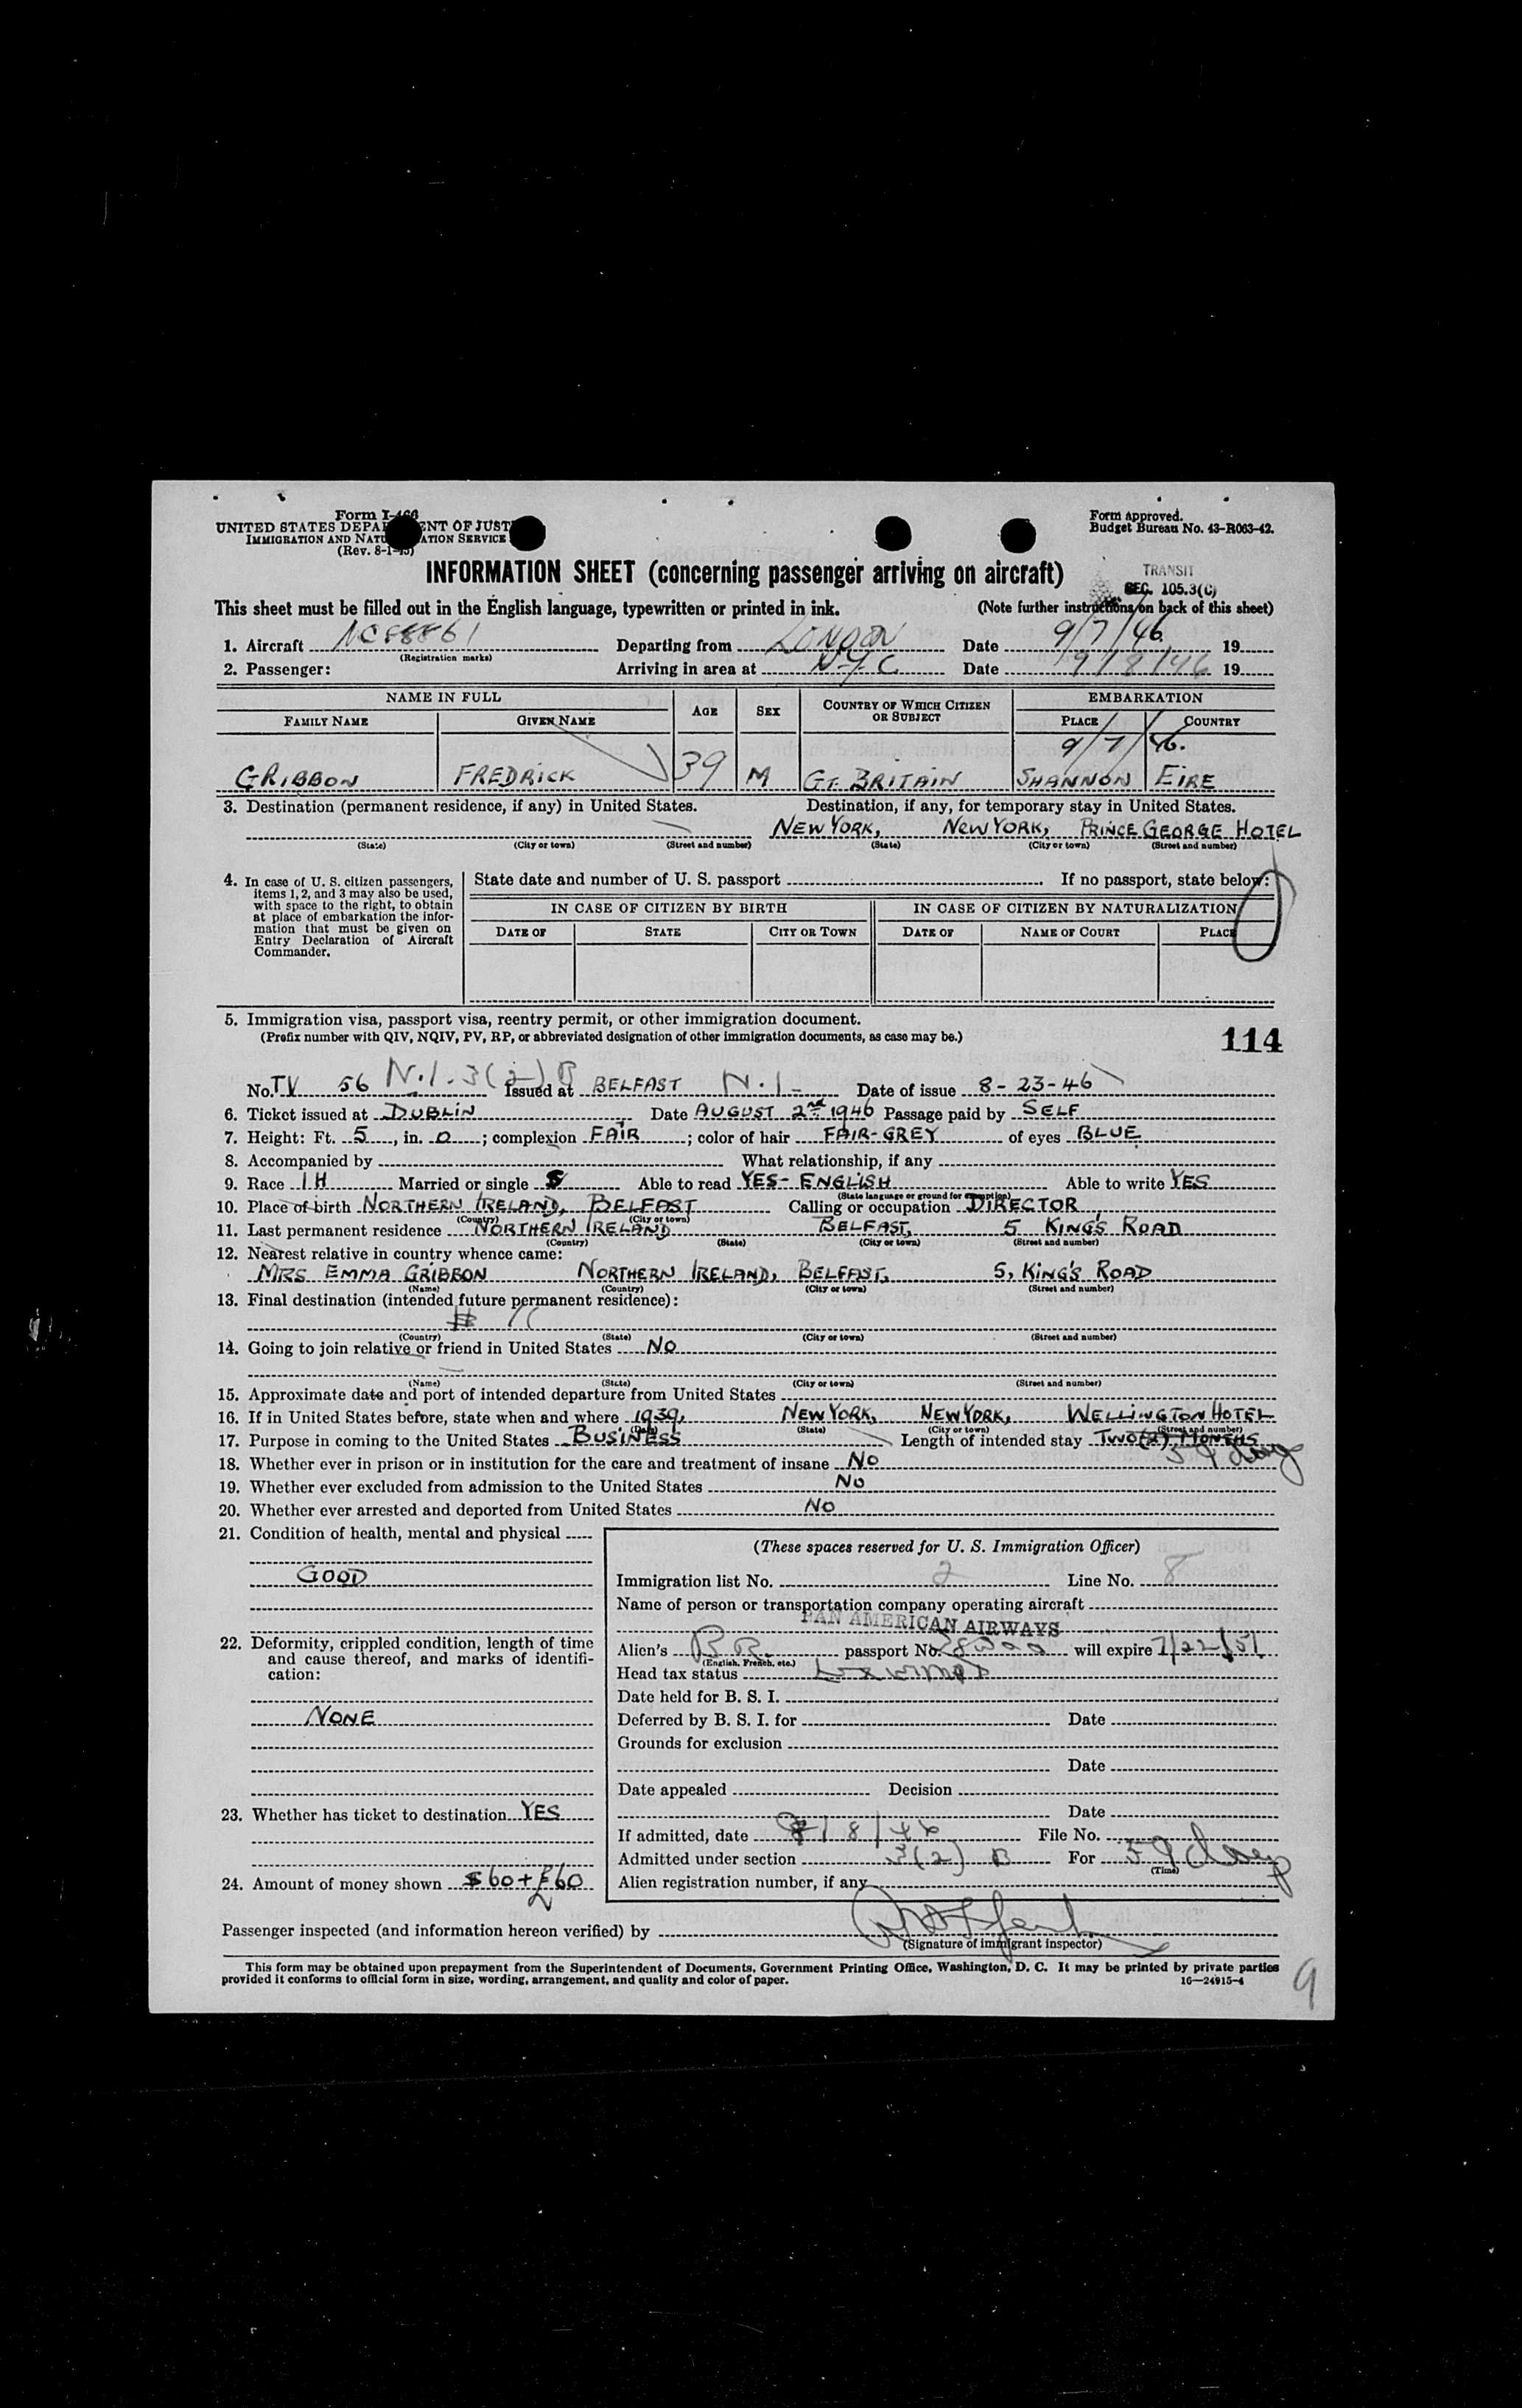 Form I-466
UNITED STATES DEPARTMENT OF JUSTICE
IMMIGRATION AND NATURALIZATION SERVICE
(Rev. 8-1-45)
Form Approved.
Budget Bureau No. 43-R063-42.
INFORMATION SHEET (concerning passenger arriving on aircraft)
TRANSIT
SEC. 105.3(C)
This sheet must be filled out in the English language, typewritten or printed in ink. (Note further instructions on back of this sheet)
1. Aircraft NC88861 Departing from LONDON Date 9/7/46 19
(Registration marks)
2. Passenger: Arriving in area at N.Y.C Date 9/8/46 19
NAME IN FULL AGE SEX COUNTRY OF WHICH CITIZEN OR SUBJECT EMBARKATION
FAMILY NAME GIVEN NAME PLACE COUNTRY
9/7/46.
GRIBBON FREDRICK 39 M GT. BRITAIN SHANNON EIRE
3. Destination (permanent residence, if any) in United States. Destination, if any, for temporary stay in United States.
NEW YORK, NEW YORK, PRINCE GEORGE HOTEL
(State) (City or town) (Street and number) (State) (City or town) (Street and number)
4. In case of U. S. citizen passengers, items 1, 2, and 3 may also be used, with space to the right, to obtain at place of embarkation the information that must be given on Entry Declaration of Aircraft Commander.
State date and number of U. S. passport If no passport, state below:
IN CASE OF CITIZEN BY BIRTH IN CASE OF CITIZEN BY NATURALIZATION
DATE OF STATE CITY OR TOWN DATE OF NAME OF COURT PLACE
5. Immigration visa, passport visa, reentry permit, or other immigration document.
(Prefix number with QIV, NQIV, PV, RP, or abbreviated designation of other immigration documents, as case may be.)
114
No. TV 56 N.I. 3(2)B Issued at BELFAST N.I. Date of issue 8-23-46
6. Ticket issued at DUBLIN Date AUGUST 2nd 1946 Passage paid by SELF
7. Height: Ft. 5, in. 0; complexion FAIR; color of hair FAIR-GREY of eyes BLUE
8. Accompanied by What relationship, if any
9. Race IH Married or single S Able to read YES- ENGLISH Able to write YES
(State language or ground for exemption)
10. Place of birth NORTHERN IRELAND, BELFAST Calling or occupation DIRECTOR
(Country) (City or town)
11. Last permanent residence NORTHERN IRELAND BELFAST, 5 KING'S ROAD
(Country) (State) (City or town) (Street and number)
12. Nearest relative in country whence came:
MRS EMMA GRIBBON NORTHERN IRELAND, BELFAST, 5, KING'S ROAD
(Name) (Country) (City or town) (Street and number)
13. Final destination (intended future permanent residence):
(Country) (State) (City or town) (Street and number)
14. Going to join relative or friend in United States NO
(Name) (State) (City or town) (Street and number)
15. Approximate date and port of intended departure from United States
16. If in United States before, state when and where 1939, NEW YORK, NEW YORK, WELLINGTON HOTEL
(Date) (State) (City or town) (Street and number)
17. Purpose in coming to the United States BUSINESS Length of intended stay TWO (2) MONTHS
59 days
18. Whether ever in prison or in institution for the care and treatment of insane NO
19. Whether ever excluded from admission to the United States NO
20. Whether ever arrested and deported from United States NO
21. Condition of health, mental and physical
GOOD
22. Deformity, crippled condition, length of time and cause thereof, and marks of identification:
NONE
23. Whether has ticket to destination YES
24. Amount of money shown $60 + £60
(These spaces reserved for U. S. Immigration Officer)
Immigration list No. 2 Line No. 8
Name of person or transportation company operating aircraft
PAN AMERICAN AIRWAYS
Alien's BR. passport No. will expire 7/22/51
(English, French, etc.)
Head tax status
Date held for B. S. I.
Deferred by B. S. I. for Date
Grounds for exclusion
Date
Date appealed Decision
Date
If admitted, date 9/8/46 File No.
Admitted under section 3(2) B For 59 days
(Time)
Alien registration number, if any
Passenger inspected (and information hereon verified) by
(Signature of immigrant inspector)
This form may be obtained upon prepayment from the Superintendent of Documents, Government Printing Office, Washington, D. C. It may be printed by private parties
provided it conforms to official form in size, wording, arrangement, and quality and color of paper. 16—24915-4
9